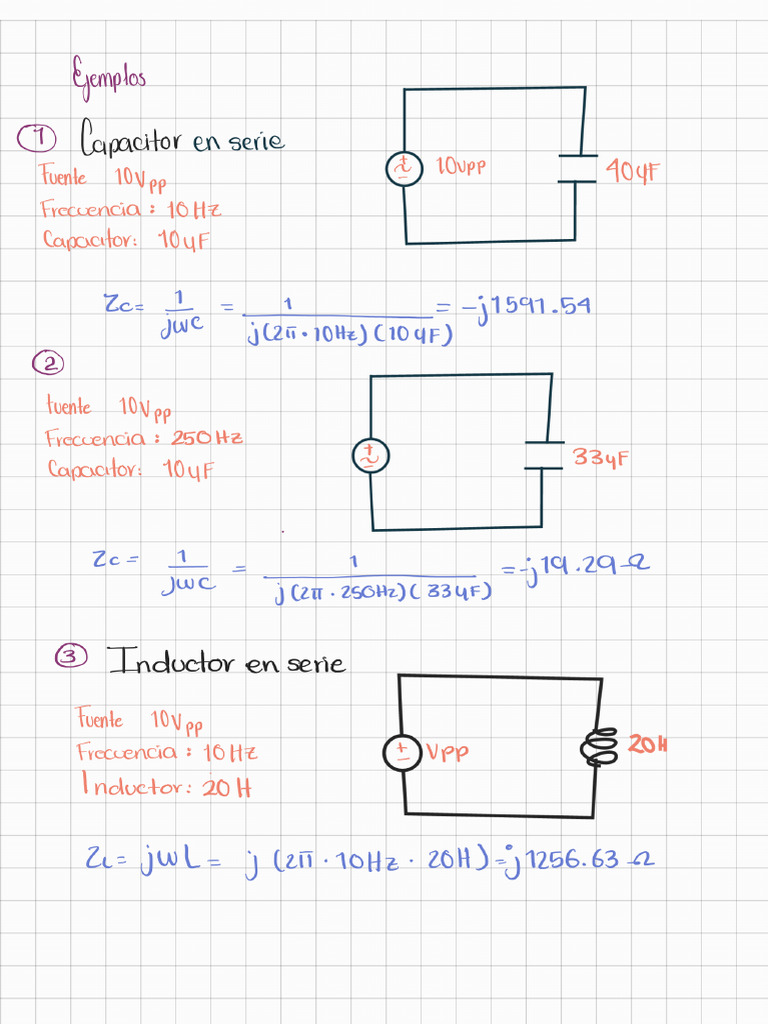 Ejemplos
1 Capacitor en serie
Fuente 10Vpp
Frecuencia: 10Hz
Capacitor: 10μF
10Vpp
40μF
Zc = 1/jωc = 1/j(2π·10Hz)(10μF) = -j1591.54
2
fuente 10Vpp
Frecuencia: 250Hz
Capacitor: 10μF
33μF
Zc = 1/jωc = 1/j(2π·250Hz)(33μF) = -j19.29Ω
3 Inductor en serie
Fuente 10Vpp
Frecuencia: 10Hz
Inductor: 20H
Vpp
20H
ZL = jωL = j(2π·10Hz·20H) = j1256.63Ω